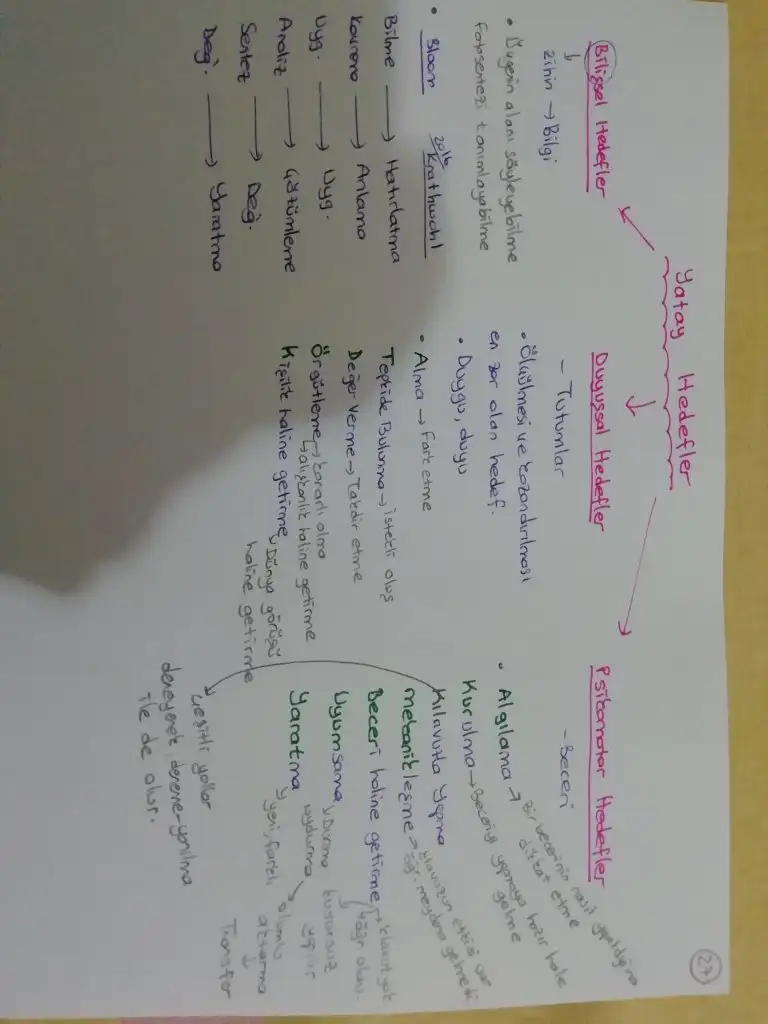 27
Yatay Hedefler
Bilişsel Hedefler
↓
zihin → Bilgi
• Öğenin alanı söyleyebilme
fotosentezi tanımlayabilme
• Bloom 2016 Krathwohl
Bilme → Hatırlatma
Kavrama → Anlama
Uyg. → Uyg.
Analiz → Çözümleme
Sentez → Değ.
Değ. → Yaratma
Duyuşsal Hedefler
- Tutumlar
• Ölçülmesi ve kazandırılması
en zor olan hedef.
• Duygu, duyu
• Alma → Fark etme
Tepkide Bulunma → istekli oluş
Değer Verme → Takdir etme
Örgütleme → kararlı olma
alışkanlık haline getirme
Kişilik haline getirme
Dünya görüşü
haline getirme
Psikomotor Hedefler
- Beceri
• Algılama → Bir becerinin nasıl yapıldığına
dikkat etme
Kurulma → Beceriyi yapmaya hazır hale
gelme
Kılavuzla yapma
Mekanikleşme → kılavuzun etkisi var
öğr. meydana gelmedi
Beceri haline getirme → kılavuz yok
öğr. oluş.
Uyumsama Duruma kusursuz
uydurma → yapılır
Yaratma
yeni, farklı olumlu
aktarma
↓
Transfer
çeşitli yollar
deneyerek, deneme-yanılma
ile de olur.